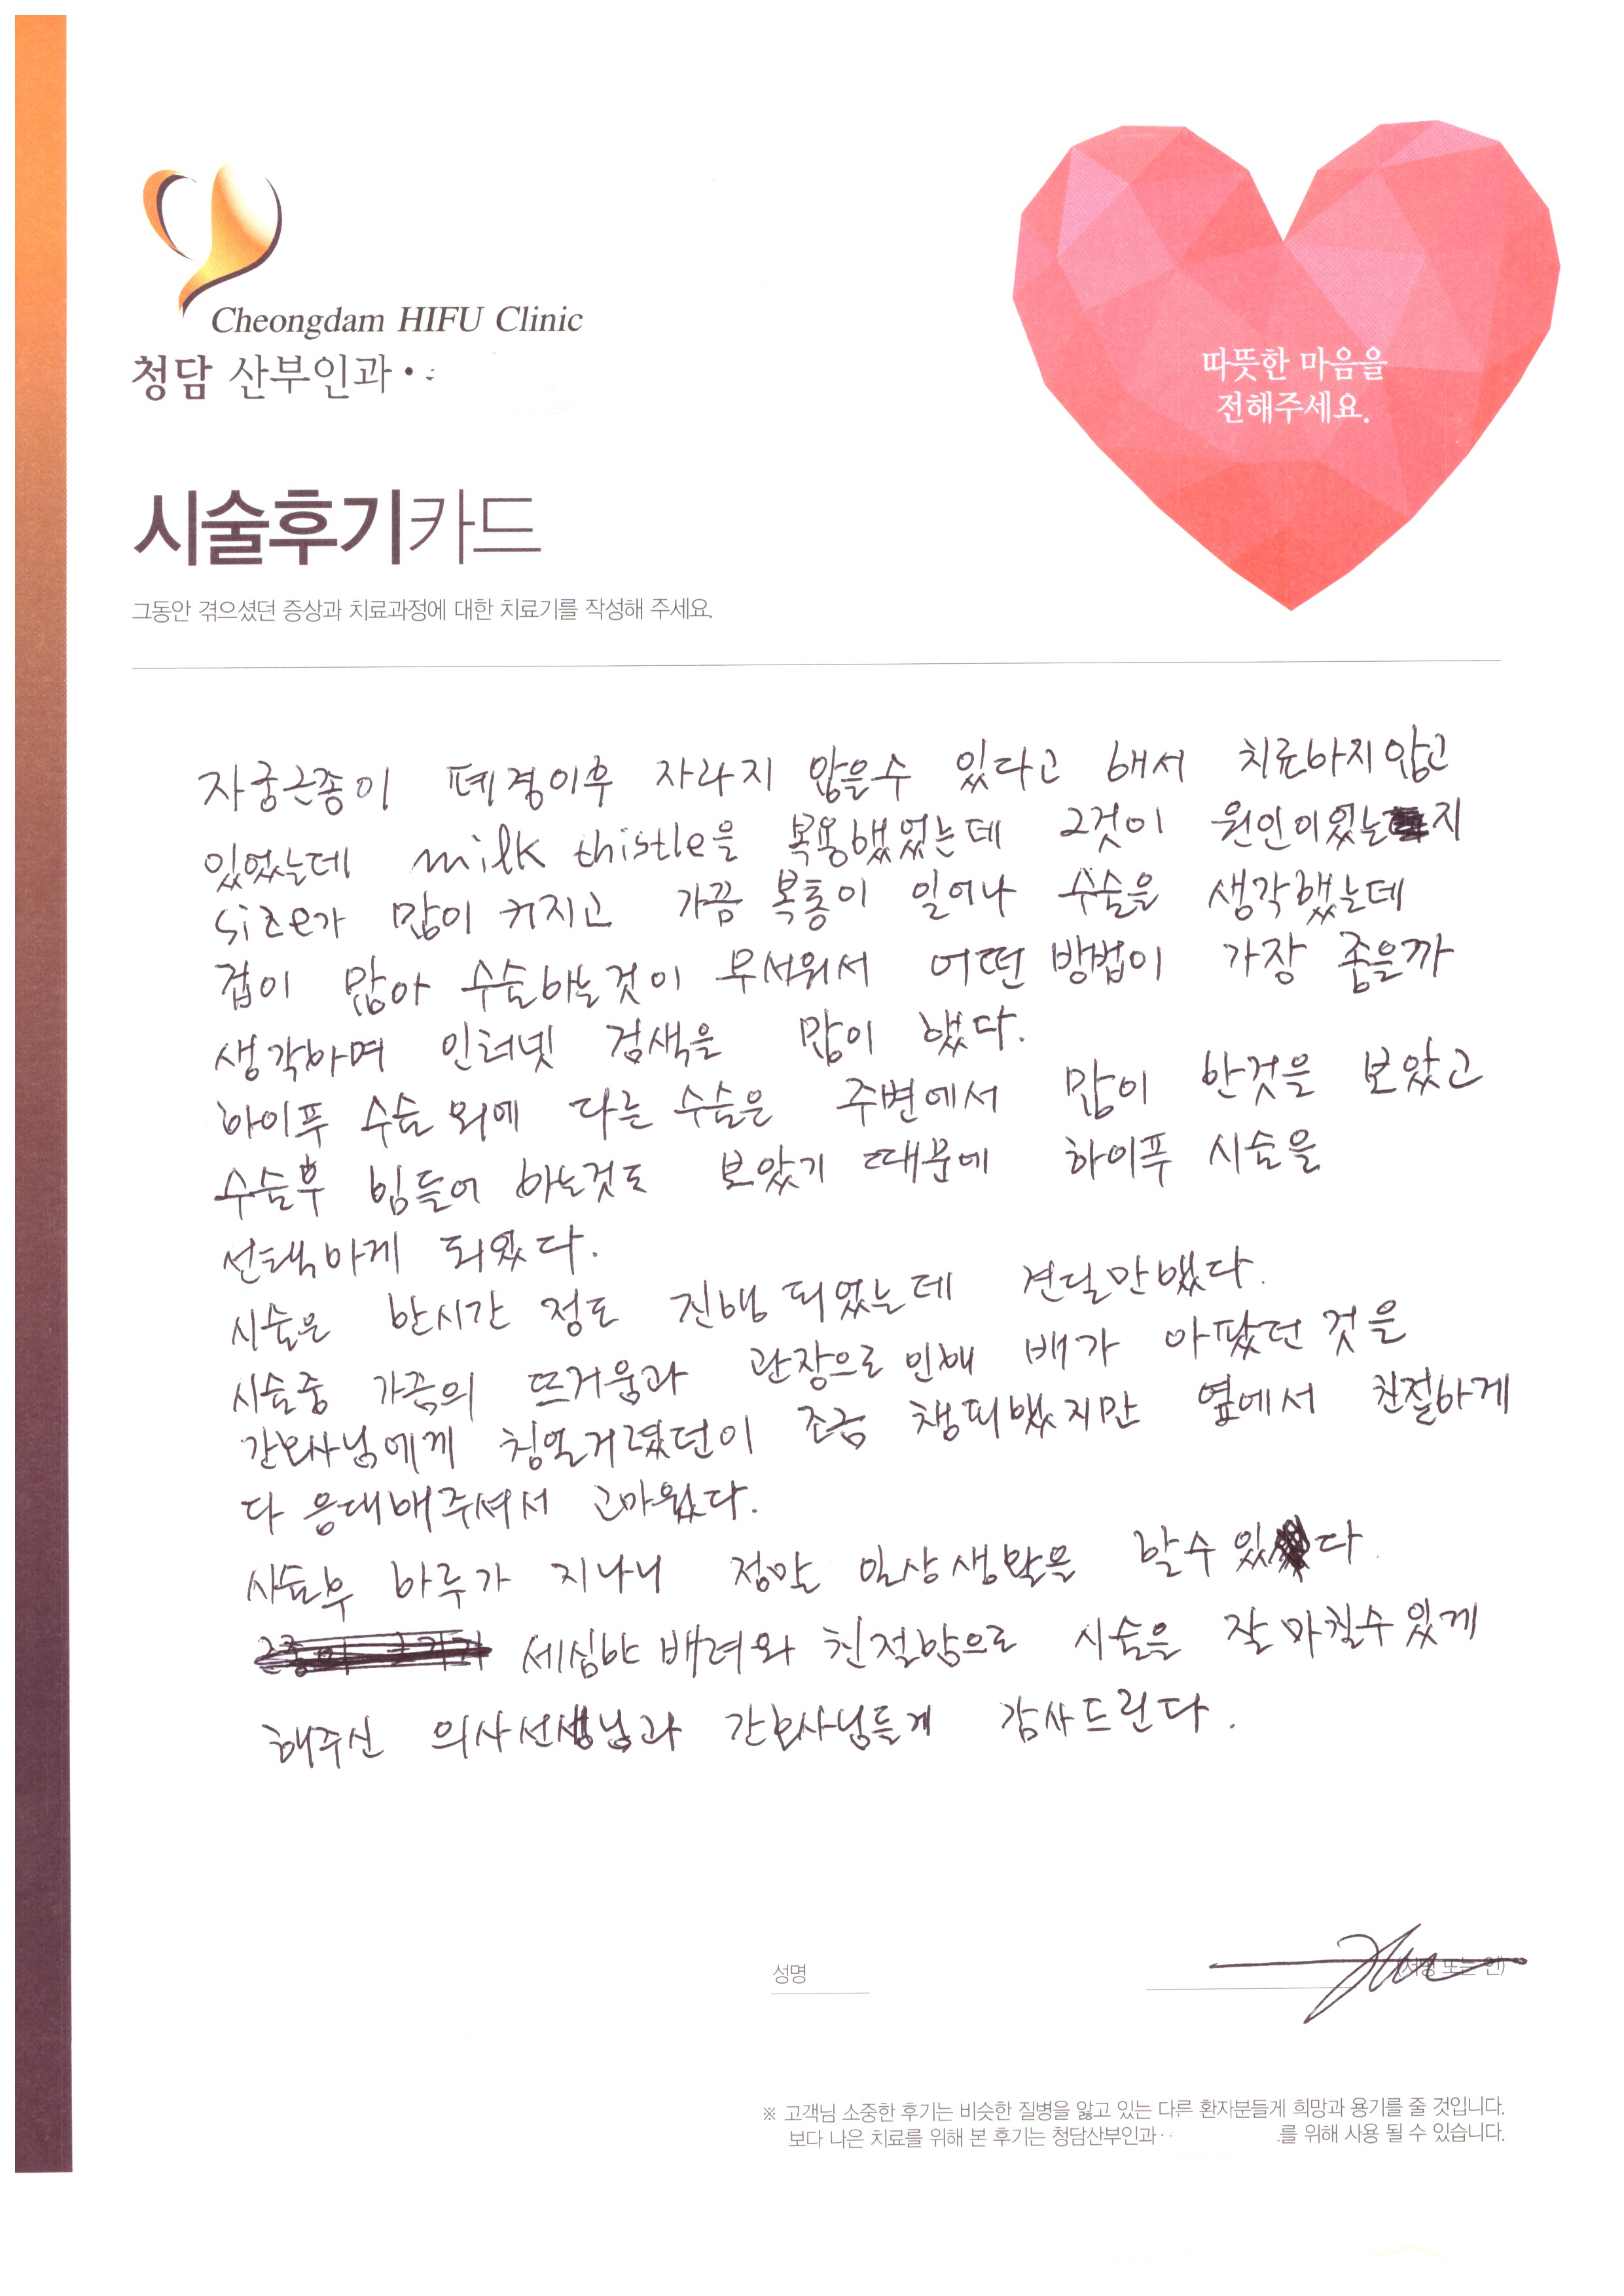 Cheongdam HIFU Clinic
청담 산부인과
따뜻한 마음을
전해주세요.
시술후기카드
그동안 겪으셨던 증상과 치료과정에 대한 치료기를 작성해 주세요.
자궁근종이 폐경이후 자라지 않을수 있다고 해서 치료하지않고
있었는데 milk thistle을 복용했었는데 그것이 원인이었는지
size가 많이 커지고 가끔 복통이 일어나 수술을 생각했는데
겁이 많아 수술하는것이 무서워서 어떤 방법이 가장 좋을까
생각하며 인터넷 검색을 많이 했다.
하이푸 수술 외에 다른 수술은 주변에서 많이 한것을 보았고
수술후 힘들어 하는것도 보았기 때문에 하이푸 시술을
선택하게 되었다.
시술은 한시간 정도 진행되었는데 견딜만했다.
시술중 가끔의 뜨거움과 관장으로 인해 배가 아팠던 것을
간호사님에게 칭얼거렸던이 조금 챙피했지만 옆에서 친절하게
다 응대해주셔서 고마웠다.
시술후 하루가 지나니 정말 일상생활을 할수있다.
세심한 배려와 친절함으로 시술을 잘 마칠수있게
해주신 의사선생님과 간호사님들게 감사드린다.
성명
(서명 또는 인)
※ 고객님 소중한 후기는 비슷한 질병을 앓고 있는 다른 환자분들게 희망과 용기를 줄 것입니다.
보다 나은 치료를 위해 본 후기는 청담산부인과 를 위해 사용 될 수 있습니다.